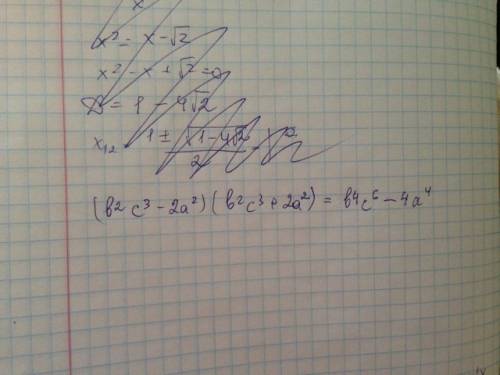 x
x² = x - √2
x² - x + √2 = 0
D = 1 - 4√2
x₁₂ 1 ± √1-4√2 / 2
(b² c³ - 2a²)(b²c³ + 2a²) = b⁴c⁶ - 4a⁴